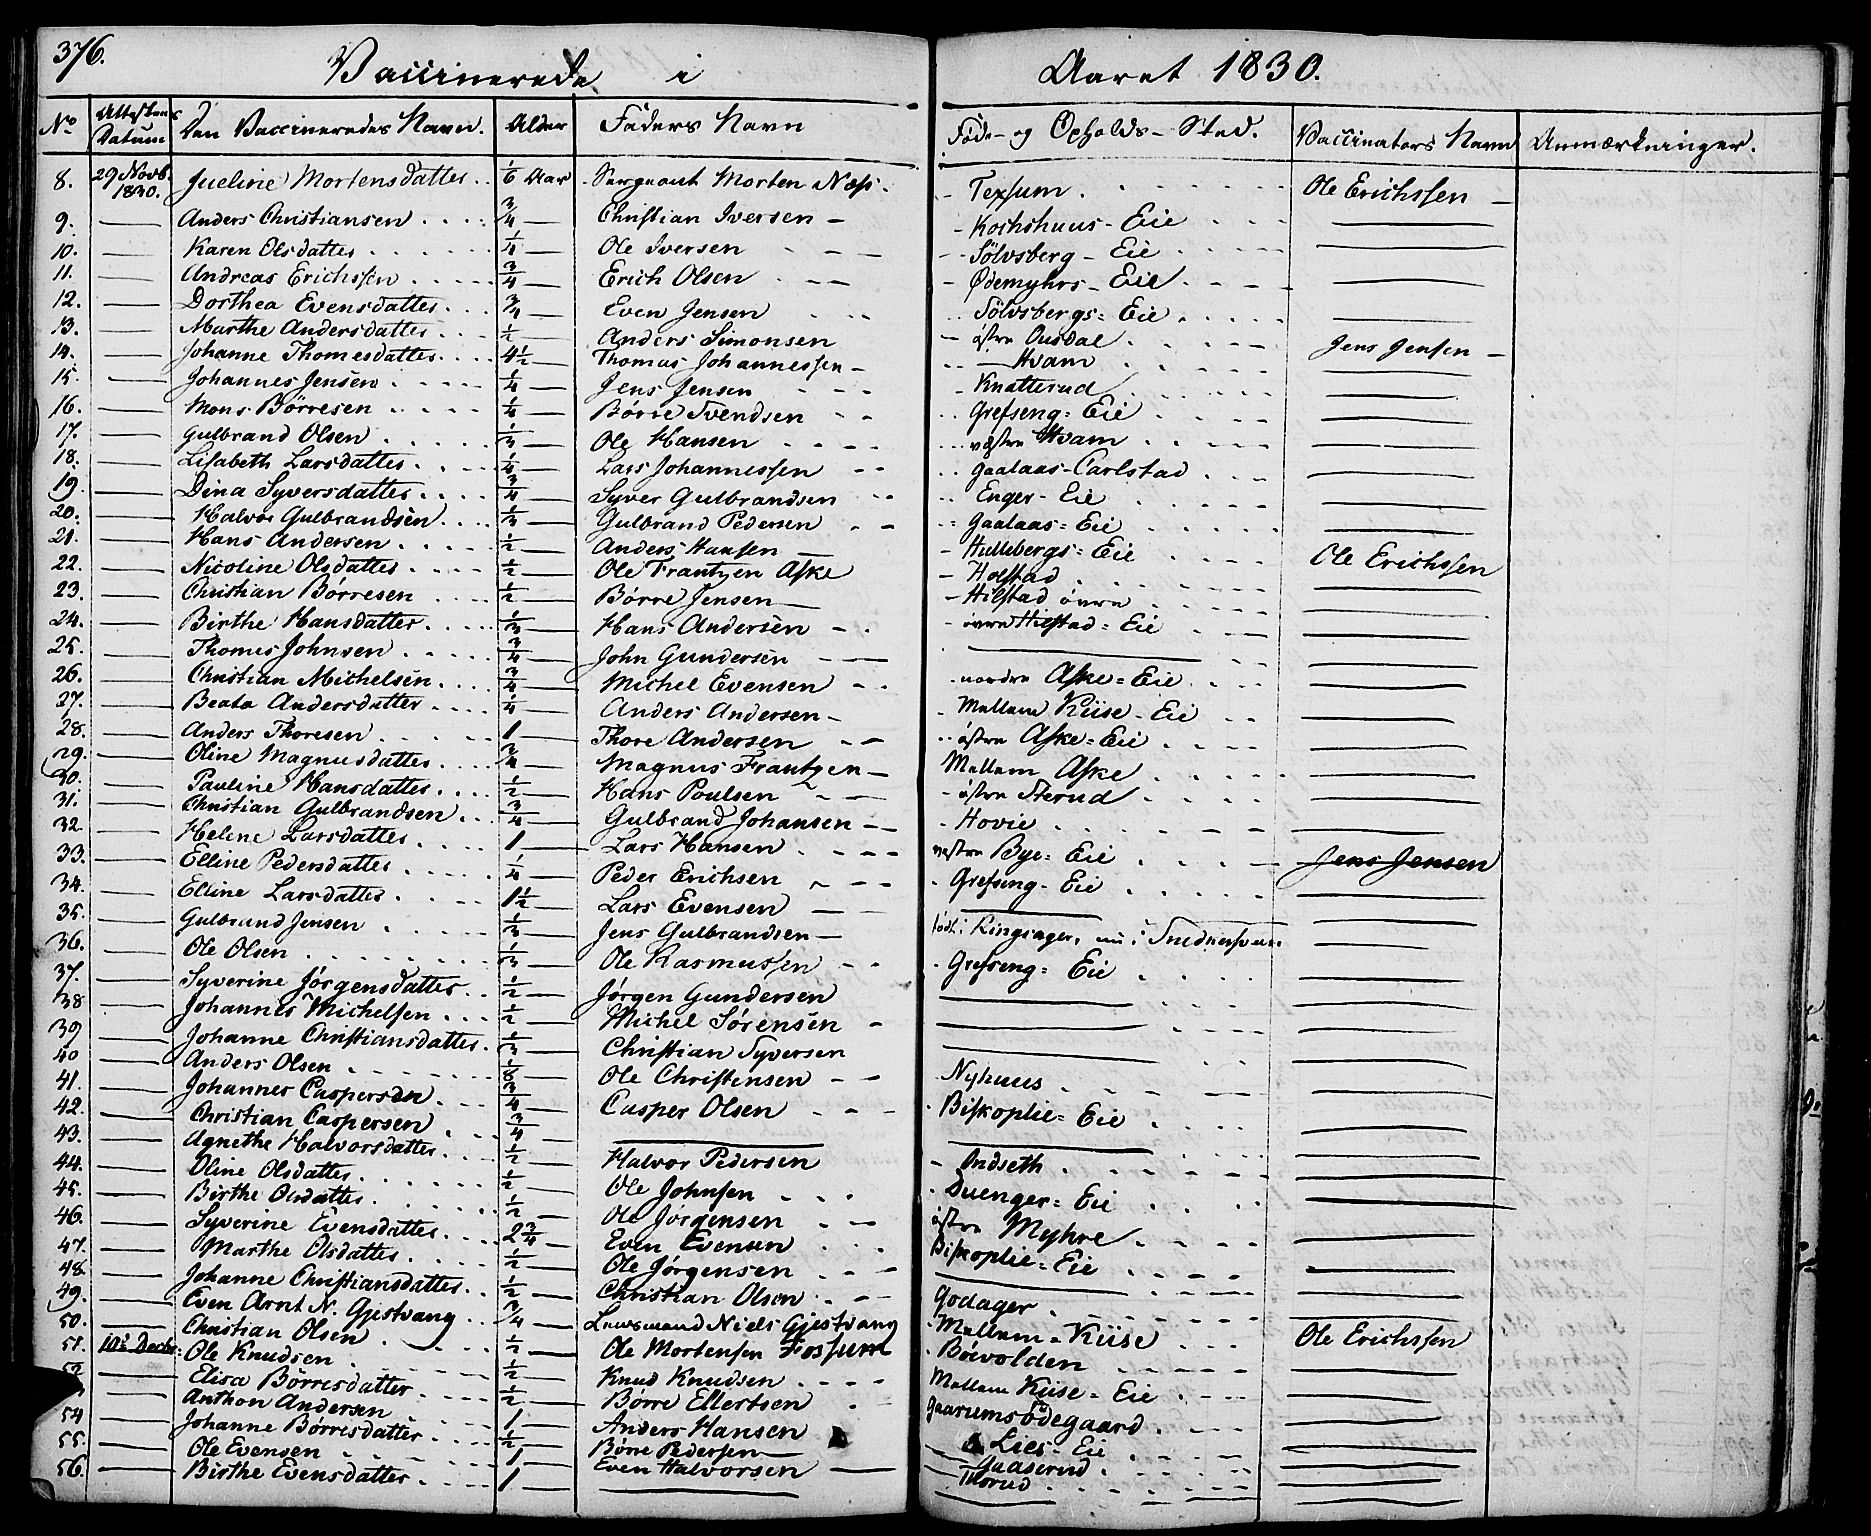 376.
Vaccinerede i Aaret 1830.
No Attestens Datum Den Vaccineredes Navn. Alder Faders Navn Føde- og Opholds-Sted. Vaccinators Navn Anmærkninger.
8. 29 Novb. 1830. Jueline Mortensdatter 1/6 Aar Sergeant Morten Næss Texsum Ole Erichssen
9. Anders Christiansen 3/4 Christian Iversen Kochshuus-Eie
10. Karen Olsdatter 1/4 Ole Iversen Sölvsberg-Eie
11. Andreas Erichssen 3/4 Erich Olsen Ødemyhrs-Eie
12. Dorthea Evensdatter 3/4 Even Jensen Sölvsbergs=Eie
13. Marthe Andersdatter 1/2 Anders Simonsen östre Ousdal Jens Jensen
14. Johanne Thomesdatter 4 1/2 Thomas Johannessen Hvam
15. Johannes Jensen 1/4 Jens Jensen Knatterud
16. Mons Börresen 1/4 Börre Svendsen Grefseng=Eie
17. Gulbrand Olsen 1/3 Ole Hansen vestre Hvam
18. Lisabeth Larsdatter 1/4 Lars Johannessen Gaalaas-Carlstad
19. Dina Syversdatter 3/4 Syver Gulbrandsen Enger-Eie
20. Halvor Gulbrandsen 1/3 Gulbrand Pedersen Gaalaas=Eie
21. Hans Andersen 1/2 Anders Hansen Hullebergs=Eie Ole Erichssen
22. Nicoline Olsdatter 1/2 Ole Frantzen Aske Holstad
23. Christian Börresen 1/2 Börre Jensen Hilstad övre
24. Birthe Hansdatter 1/3 Hans Andersen övre Hilstad=Eie
25. Thomes Johnsen 3/4 John Gundersen
26. Christian Michelsen 3/4 Michel Evensen nordre Aske=Eie
27. Beata Andersdatter 1/4 Anders Andersen Mellem Kiise-Eie
28. Anders Thoresen 1 Thore Andersen östre Aske=Eie
29. Oline Magnusdatter 3/4 Magnus Frantzen Mellem Aske
30. Pauline Hansdatter 1/2 Hans Poulsen östre Sterud
31. Christian Gulbrandsen 3/4 Gulbrand Johansen Hovie
32. Helene Larsdatter 1 Lars Hansen vestre Bye=Eie Jens Jensen
33. Elline Pedersdatter 1/4 Peder Erichsen Grefseng-Eie
34. Elline Larsdatter 1 1/2 Lars Evensen
35. Gulbrand Jensen 1/3 Jens Gulbrandsen födt i Ringsager, nu i
36. Ole Olsen 1/3 Ole Rasmussen Grefseng=Eie
37. Syverine Jørgensdatter 1/2 Jørgen Gundersen
38 Johannes Michelsen 1/2 Michel Sørensen
39 Johanne Christiansdatter 1/3 Christian Syversen
40 Anders Olsen 1/8 Ole Christensen Nyhuus
41. Johannes Caspersen 3/4 Casper Olsen Biskoplie=Eie
42. Christian Caspersen 3/4
43. Agnethe Halvorsdatter 1/2 Halvor Pedersen Ondseth
44. Oline Olsdatter 1/2 Ole Johnsen Duenger=Eie
45. Birthe Olsdatter 1/2 Ole Jørgensen östre Myhre
46. Syverine Evensdatter 2 3/4 Even Evensen Biskoplie=Eie
47. Marthe Olsdatter 1/2 Ole Jørgensen
48. Johanne Christiansdatter 1/2 Christian Olsen Godager
49. Even Arnt N. Gjestvang 3/4 Lensmand Niels Gjestvang
50. Christian Olsen 1/2 Ole Mortensen Fossum Mellem-Kiise Ole Erichssen
51. 10de Decbr. Ole Knudsen 1/2 Knud Knudsen Böevolden
52 Elisa Börresdatter 1/2 Börre Ellertsen Mellem Kiise=Eie
3 Anthon Andersen 1 Anders Hansen Gaarumsödegaard
54 Johanne Börresdatter 1/2 Börre Pedersen Lies-Eie
55. Ole Evensen 1 Even Halvorsen Gaaserud
56. Birthe Evensdatter 1 Thorud